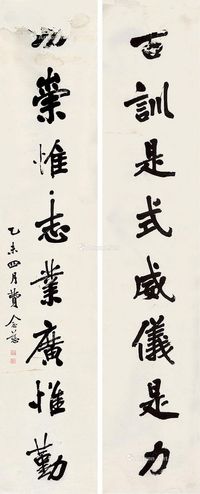 古訓是式威儀是力
崇惟志業廣惟勤
乙未四月費念慈